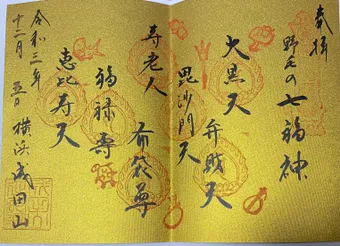 奉拝
野毛の七福神
大黒天
弁財天
毘沙門天
寿老人
布袋尊
福禄寿
恵比寿天
令和三年
十二月 五日 横浜成田山